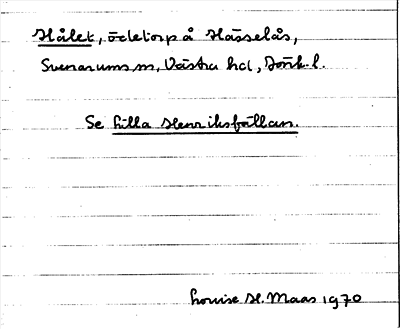 Hålet, ödetorp å Hässelås,
Svenarums sn, Västra hd, Jönk. l.
Se Lilla Henriksfällan.
Louise H. Maas 1970